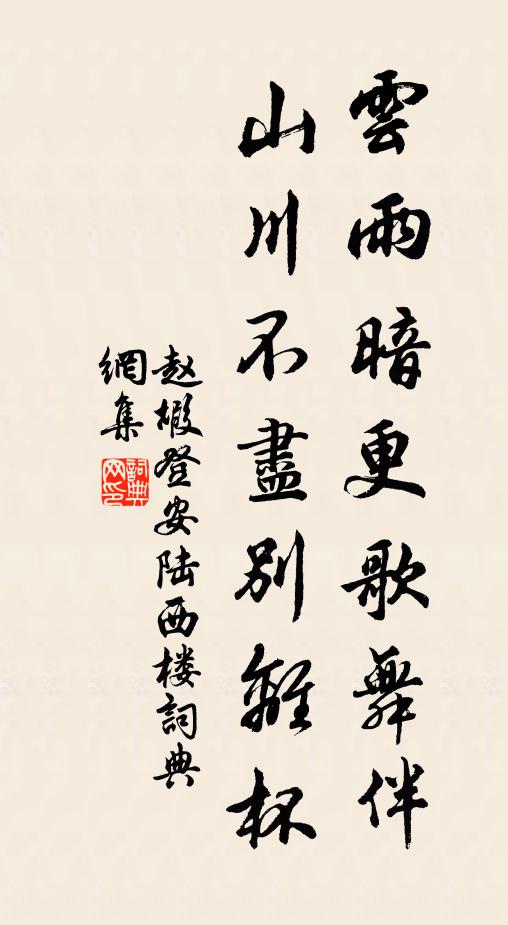 雲雨暗更歌舞伴
山川不盡別離杯
赵嘏登安陆西楼詞典
網集
詞典
网印